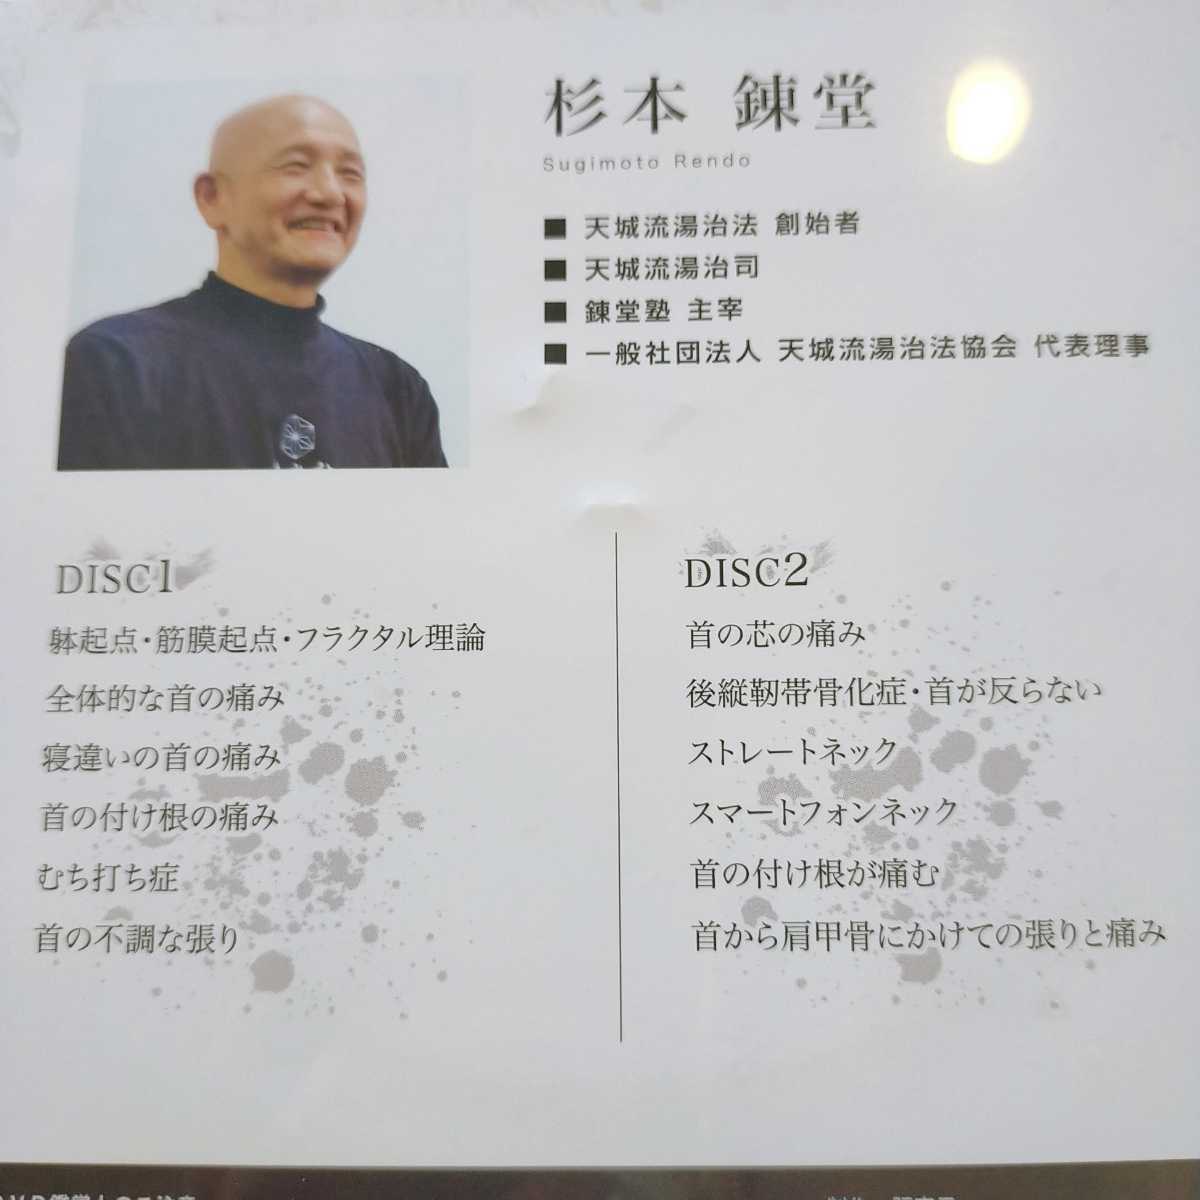 杉本 錬堂
Sugimoto Rendo
■ 天城流湯治法 創始者
■ 天城流湯治司
■ 錬堂塾 主宰
■ 一般社団法人 天城流湯治法協会 代表理事
DISC1
躰起点・筋膜起点・フラクタル理論
全体的な首の痛み
寝違いの首の痛み
首の付け根の痛み
むち打ち症
首の不調な張り
DISC2
首の芯の痛み
後縦靭帯骨化症・首が反らない
ストレートネック
スマートフォンネック
首の付け根が痛む
首から肩甲骨にかけての張りと痛み